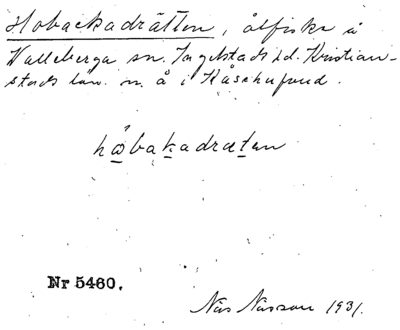 Hobackadrätten, ålfiske å
Valleberga sn. Ingelstads hd. Kristian-
stads län. n. å i Kåsehufvud.
håbakadrætan
Nr 5460.
Nils Nilsson 1931.